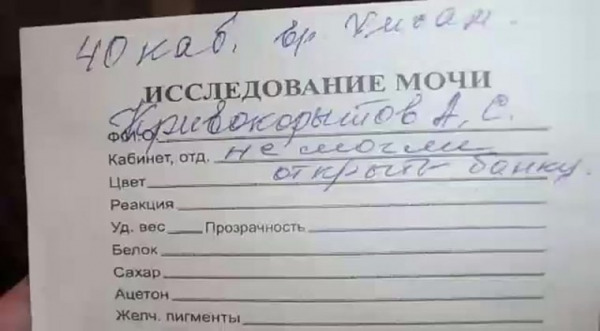 40 каб. вр.
ИССЛЕДОВАНИЕ МОЧИ
Ф.И.О. Кривокорытов А. С.
Кабинет, отд. не могли
Цвет открыть банку.
Реакция
Уд. вес Прозрачность
Белок
Сахар
Ацетон
Желч. пигменты